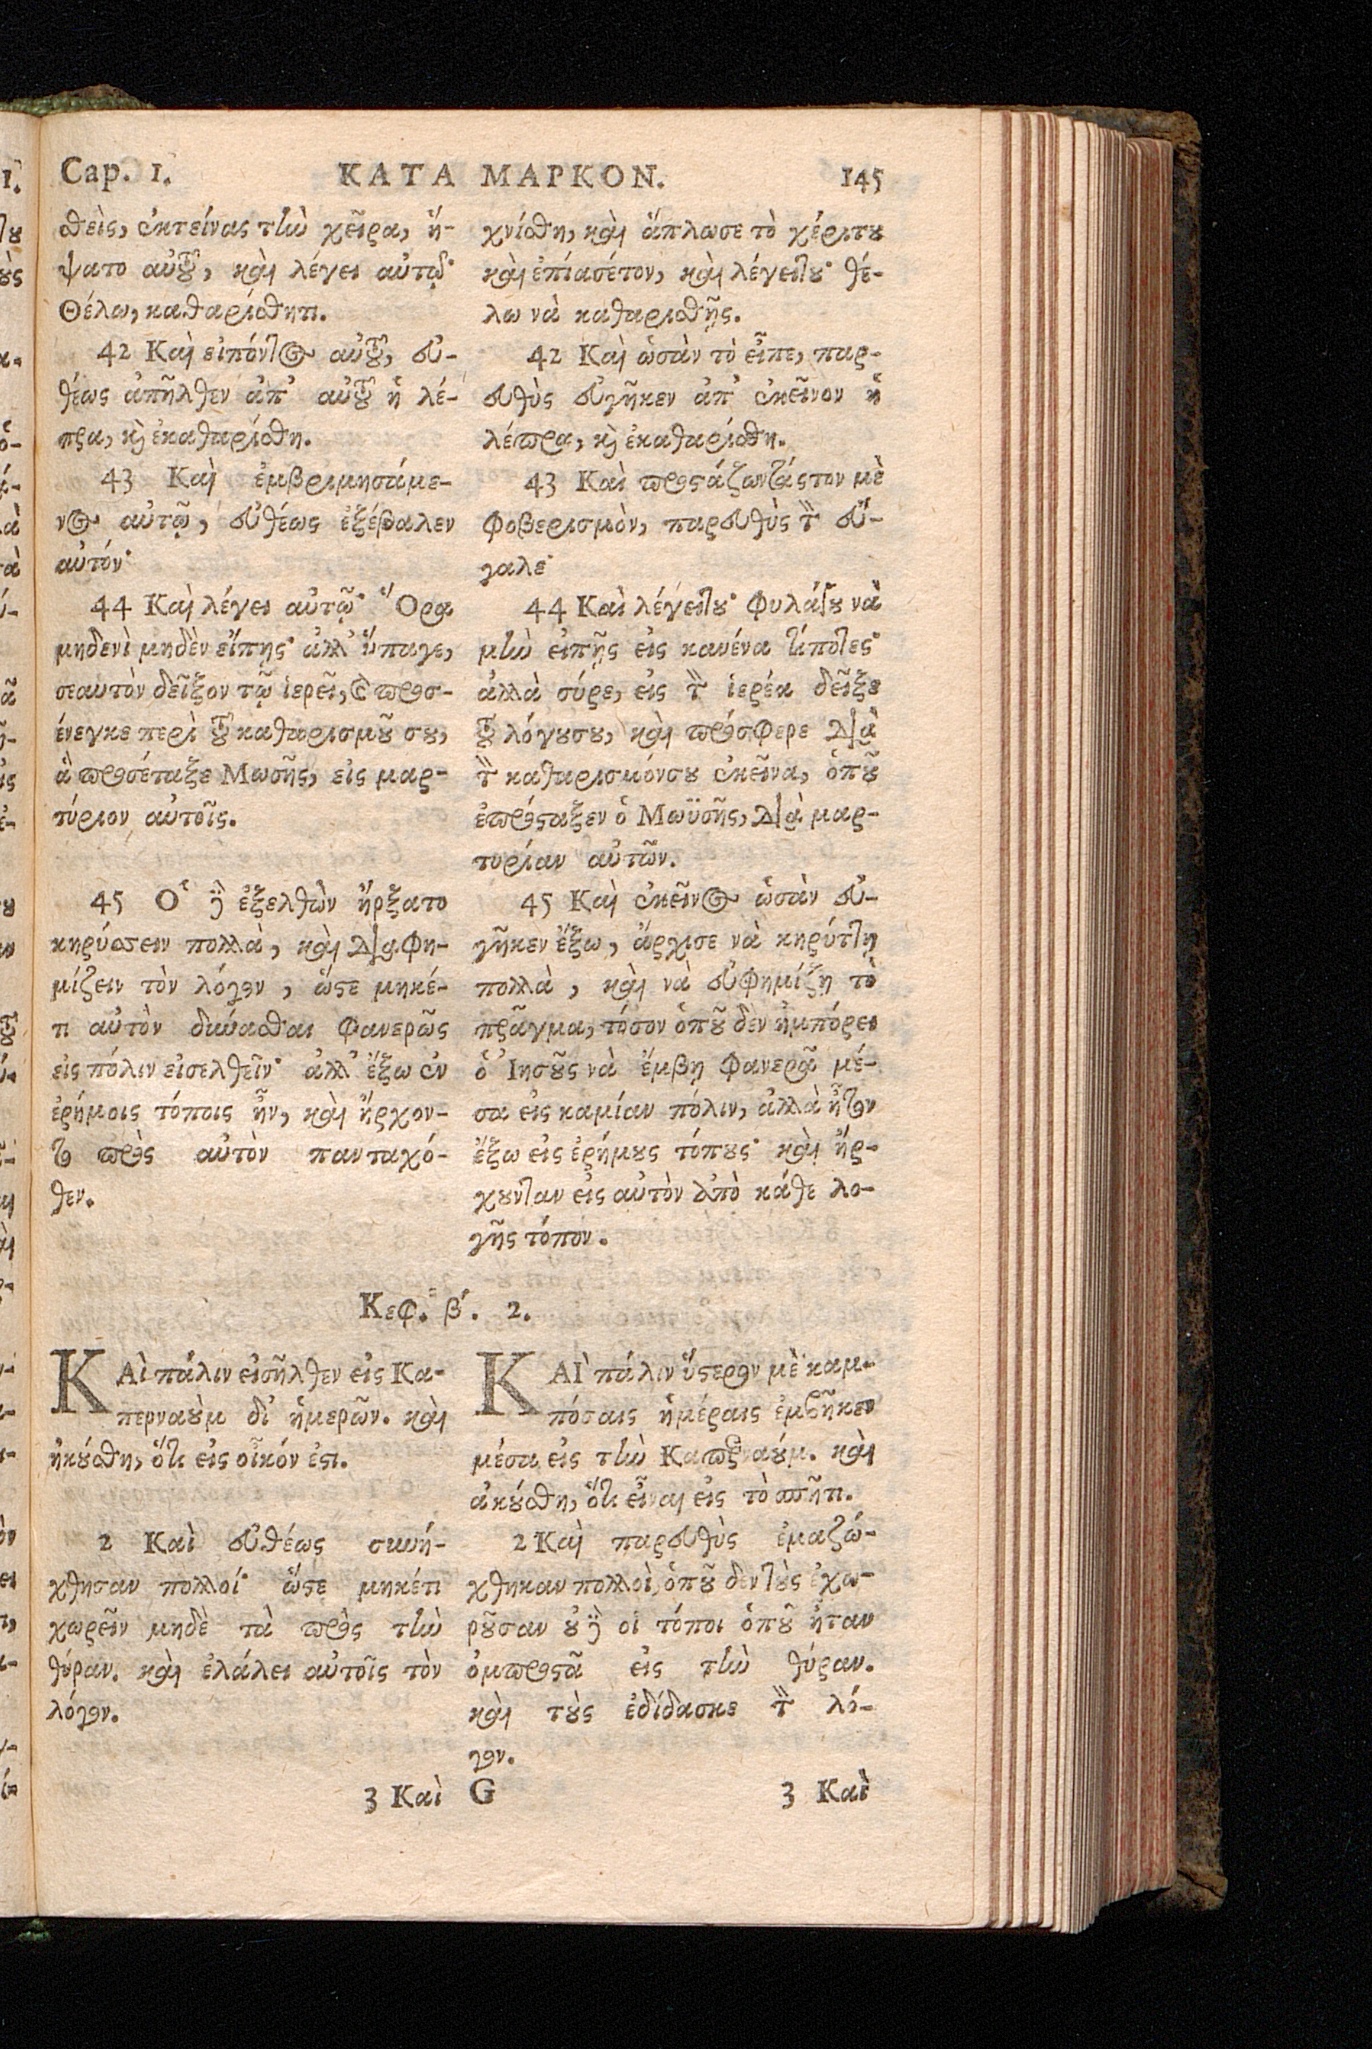 Cap. 1. ΚΑΤΑ ΜΑΡΚΟΝ. 145
θεὶς, ἐκτείνας τὴν χεῖρα, ἥ-
ψατο αὐτοῦ, καὶ λέγει αὐτῷ·
Θέλω, καθαρίσθητι.
42 Καὶ εἰπόντος αὐτοῦ, εὐ-
θέως ἀπῆλθεν ἀπ' αὐτοῦ ἡ λέ-
πρα, κὶ ἐκαθαρίσθη.
43 Καὶ ἐμβριμησάμε-
νος αὐτῷ, εὐθέως ἐξέβαλεν
αὐτόν·
44 Καὶ λέγει αὐτῷ· Ὅρα
μηδενὶ μηδὲν εἴπῃς· ἀλλ' ὕπαγε,
σεαυτὸν δεῖξον τῷ ἱερεῖ, ϗ προσ-
ένεγκε περὶ τοῦ καθαρισμοῦ σου,
ἃ προσέταξε Μωσῆς, εἰς μαρ-
τύριον αὐτοῖς.
45 Ὁ δὲ ἐξελθὼν ἤρξατο
κηρύσσειν πολλὰ, καὶ διαφη-
μίζειν τὸν λόγον, ὥστε μηκέ-
τι αὐτὸν δύνασθαι φανερῶς
εἰς πόλιν εἰσελθεῖν· ἀλλ' ἔξω ἐν
ἐρήμοις τόποις ἦν, καὶ ἤρχον-
το πρὸς αὐτὸν πανταχό-
θεν.
χνίσθη, καὶ ἅπλωσε τὸ χέριτου
καὶ ἐπίασέτον, καὶ λέγειτου· θέ-
λω νὰ καθαρισθῇς.
42 Καὶ ὡσὰν τὸ εἶπε, παρ-
ευθὺς εὐγῆκεν ἀπ' ἐκεῖνον ἡ
λέπρα, κὶ ἐκαθαρίσθη.
43 Καὶ προστάζωντάςτον μὲ
φοβερισμὸν, παρευθὺς τὸν εὔ-
γαλε·
44 Καὶ λέγειτου· Φυλάξου νὰ
μὴν εἰπῇς εἰς κανένα τίποτες·
ἀλλὰ σύρε, εἰς τὸν ἱερέα δεῖξε
τοῦ λόγουσου, καὶ πρόσφερε διὰ
τὸν καθαρισμόνσου ἐκεῖνα, ὁποῦ
ἐπρόσταξεν ὁ Μωϋσῆς, διὰ μαρ-
τυρίαν αὐτῶν.
45 Καὶ ἐκεῖνος ὡσὰν εὐ-
γῆκεν ἔξω, ἄρχισε νὰ κηρύττῃ
πολλὰ, καὶ νὰ εὐφημίζῃ τὸ
πρᾶγμα, τόσον ὁποῦ δὲν ἠμπόρει
ὁ Ἰησοῦς νὰ ἔμβῃ φανερᾶ μέ-
σα εἰς καμίαν πόλιν, ἀλλὰ ἦτον
ἔξω εἰς ἐρήμους τόπους· καὶ ἤρ-
χουνταν εἰς αὐτὸν ἀπὸ κάθε λο-
γῆς τόπον.
Κεφ. β'. 2.
ΚΑὶ πάλιν εἰσῆλθεν εἰς Κα-
περναοὺμ δι' ἡμερῶν. καὶ
ἠκούσθη, ὅτι εἰς οἶκόν ἐστι.
2 Καὶ εὐθέως συνή-
χθησαν πολλοί· ὥστε μηκέτι
χωρεῖν μηδὲ τὰ πρὸς τὴν
θύραν. καὶ ἐλάλει αὐτοῖς τὸν
λόγον.
ΚΑΙ πάλιν ὕστερον μὲ καμ-
πόσαις ἡμέραις ἐμβῆκεν
μέσα εἰς τὴν Καπερναούμ. καὶ
ἀκούσθη, ὅτι εἶναι εἰς τὸ σπῆτι.
2 Καὶ παρευθὺς ἐμαζώ-
χθηκαν πολλοὶ, ὁποῦ δεντοὺς ἐχω-
ροῦσαν οὐδὲ οἱ τόποι ὁποῦ ἦταν
ὀμπροστᾶ εἰς τὴν θύραν.
καὶ τοὺς ἐδίδασκε τὸν λό-
γον.
3 Καὶ G 3 Καὶ